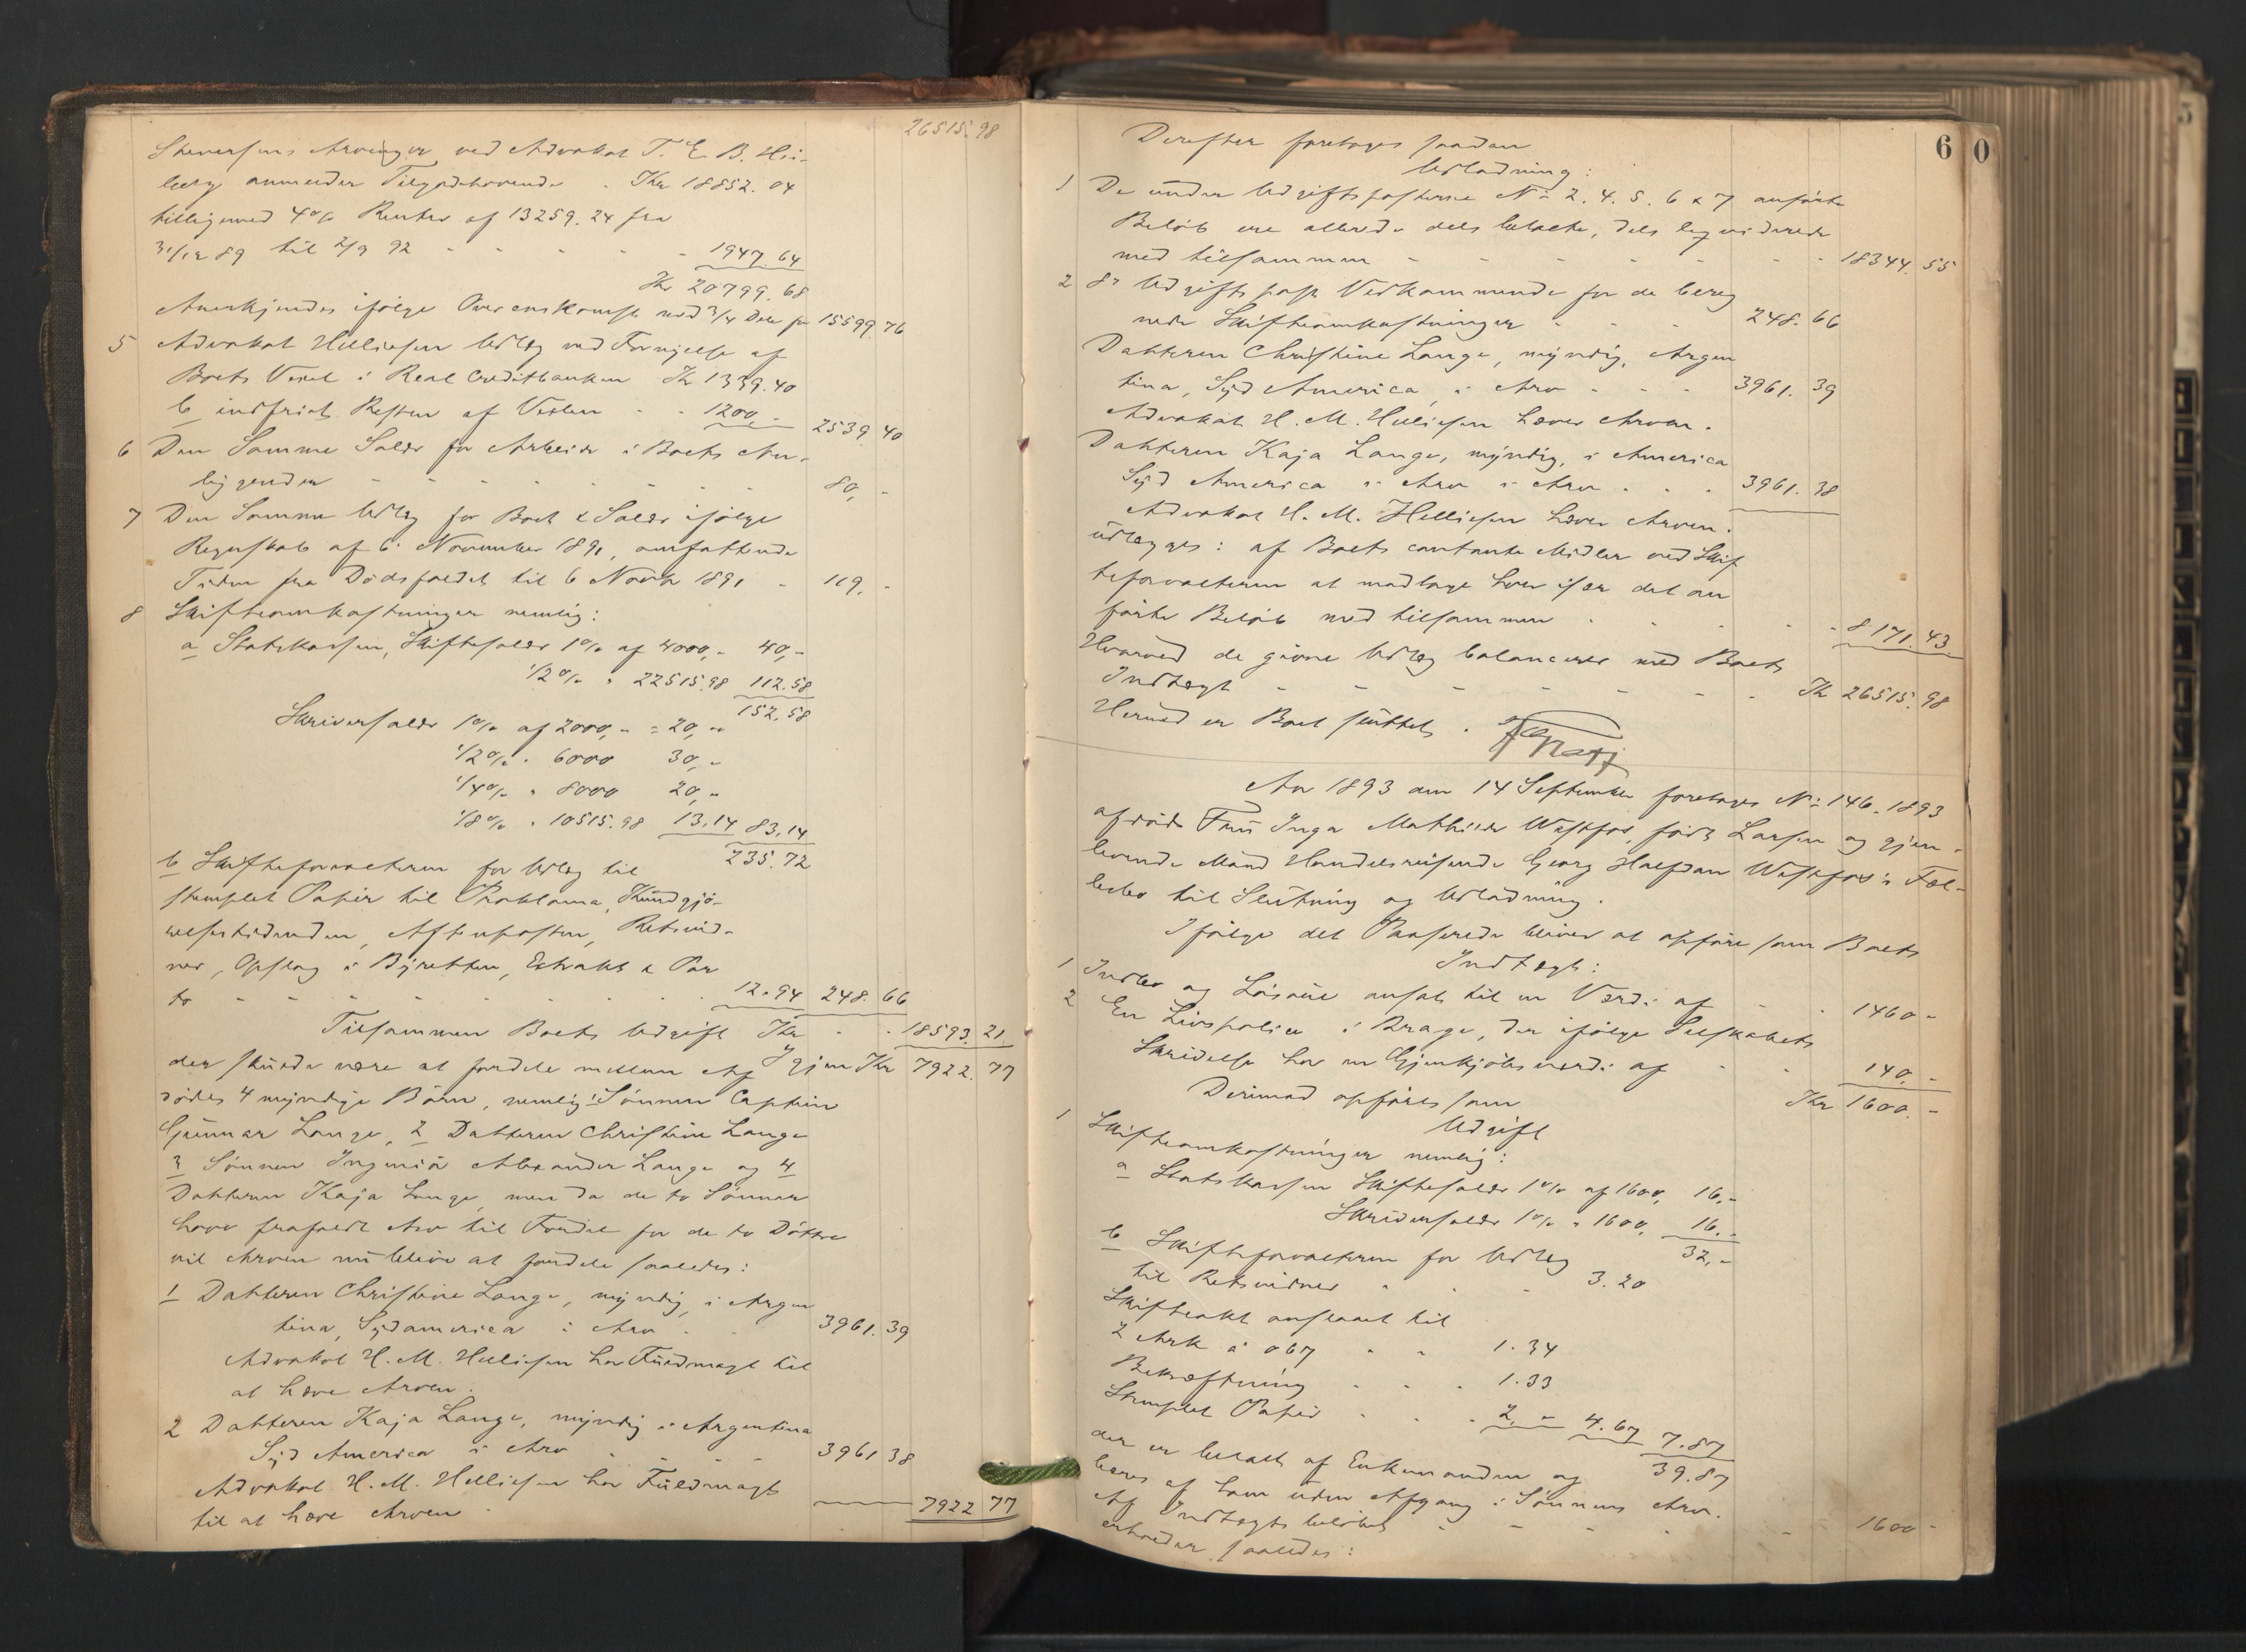 26515.98
Stenersens Arvinger ved Advokat T. E. B. Hei-
berg anmelder Tilgodehavende - Kr 18852.04
tilligemed 4% Renter af 13259.24 fra
31/12 89 til 2/9 92 - - - - 1947.64
Kr 20799.68
Anerkjendes ifølge Overenskomst med 3/4 Dele pr 15599 76
5 Advokat Helliesen Udlæg ved Fornyelse af
Boets Vexel i Real Creditbanken Kr 1339.40
b indfriet Resten af Vexlen - - 1200,- 2539 40
6 Den Samme Salær for Arbeide i Boets An-
liggender - - - - - - - 80, -
7 Den Samme Udlæg for Boet & Salær ifølge
Regnskab af 6 November 1891, omfattende
Tiden fra Dødsfaldet til 6 Novbr 1891 - 119, -
8 Skifteomkostninger nemlig:
a Statskassen, Skiftesalær 1% af 4000,- 40,-
1/2% " 22515.98 112.58
152.58
Skriversalær 1% af 2000,- = 20,-
1/2% " 6000 30,-
1/4% " 8000 20,-
1/8% " 10515.98 13.14 83.14
235.72
b Skifteforvalteren for Udlæg til
stemplet Papir til Proklama, Kundgjø-
relsestidenden, Aftenposten, Retsvid-
ner, Opslag i Byretten, Extrakt & Por
to - - - - - - - 12.94 248. 66
Tilsammen Boets Udgift Kr - - 18593. 21
Igjen Kr 7922. 77
der skulde være at fordele mellem Af
dødes 4 myndige Børn, nemlig: Sønnen Captein
Gunnar Lange, 2 Datteren Christine Lange
3 Sønnen Ingeniør Alexander Lange og 4
Datteren Kaja Lange, men da de to Sønner
have frafaldt Arv til Fordel for de to Døttre
vil Arven nu blive at fordele saaledes:
1 Datteren Christine Lange, myndig, i Argen
tina, Sydamerica i Arv - - 3961. 39
Advokat H. M. Helliesen har Fuldmagt til
at hæve Arven.
2 Datteren Kaja Lange, myndig i Argentina
Syd America i Arv - - - 3961 38
Advokat H. M. Helliesen har Fuldmagt
til at hæve Arven - 7922 77
60
Derefter foretages saadan
Udlodning:
1 De under Udgiftsposterne No 2. 4. 5. 6 & 7 anførte
Beløb ere allerede dels betalte, dels liqviderede
med tilsammen - - - - - - - 18344. 55
2 8de Udgiftspost Vedkommende for de bereg
nede Skifteomkostninger - - - 248. 66
Datteren Christine Lange, myndig, Argen
tina, Syd America, i Arv - - - 3961. 39
Advokat H. M. Helliesen hæver Arven.
Datteren Kaja Lange, myndig, i America
Syd America i Arv i Arv - - - 3961. 38
Advokat H. M. Helliesen hæver Arven.
udlægges: af Boets contante Midler ved Skif
teforvalteren at modtage hver især det an
førte Beløb med tilsammen - - - - - 8171. 43.
Hvorved de givne Udlæg balancerer med Boets
Indtægt - - - - - - - Kr 26515. 98
Hermed er Boet sluttet.
Aar 1893 den 14 September foretages No 146. 1893
afdøde Fru Inga Mathilde Westfos, født Larsen og gjen-
levende Mand Handelsreisende Georg Halfdan Westfos's Fæl-
lesbo til Slutning og Udlodning.
Ifølge det Passerede bliver at opføre som Boets
Indtægt:
1 Indbo og Løsøre ansat til en Værdi af - - 1460 -
2 En Livspolice i Brage, der ifølge Selskabets
Skrivelse har en Gjenkjøbsværdi af - - 140, -
Kr 1600. -
Derimod opføres som
Udgift
1 Skifteomkostninger nemlig:
a Statskassen Skiftesalær 1% af 1600, 16,-
Skriversalær 1% " 1600, 16,-
32,-
b Skifteforvalteren for Udlæg
til Retsvidner - - - 3.20
Skifteakt anslaaet til
2 Ark á 067 - - 1.34
Bekræftning - - - 1.33
Stemplet Papir - - - 2,- 4.67 7.87
39.87
der er betalt af Enkemanden og
bæres af ham uden Afgang i Sønnens Arv.
Af Indtægtsbeløbet - - - - - - 1600 -
erholder saaledes: